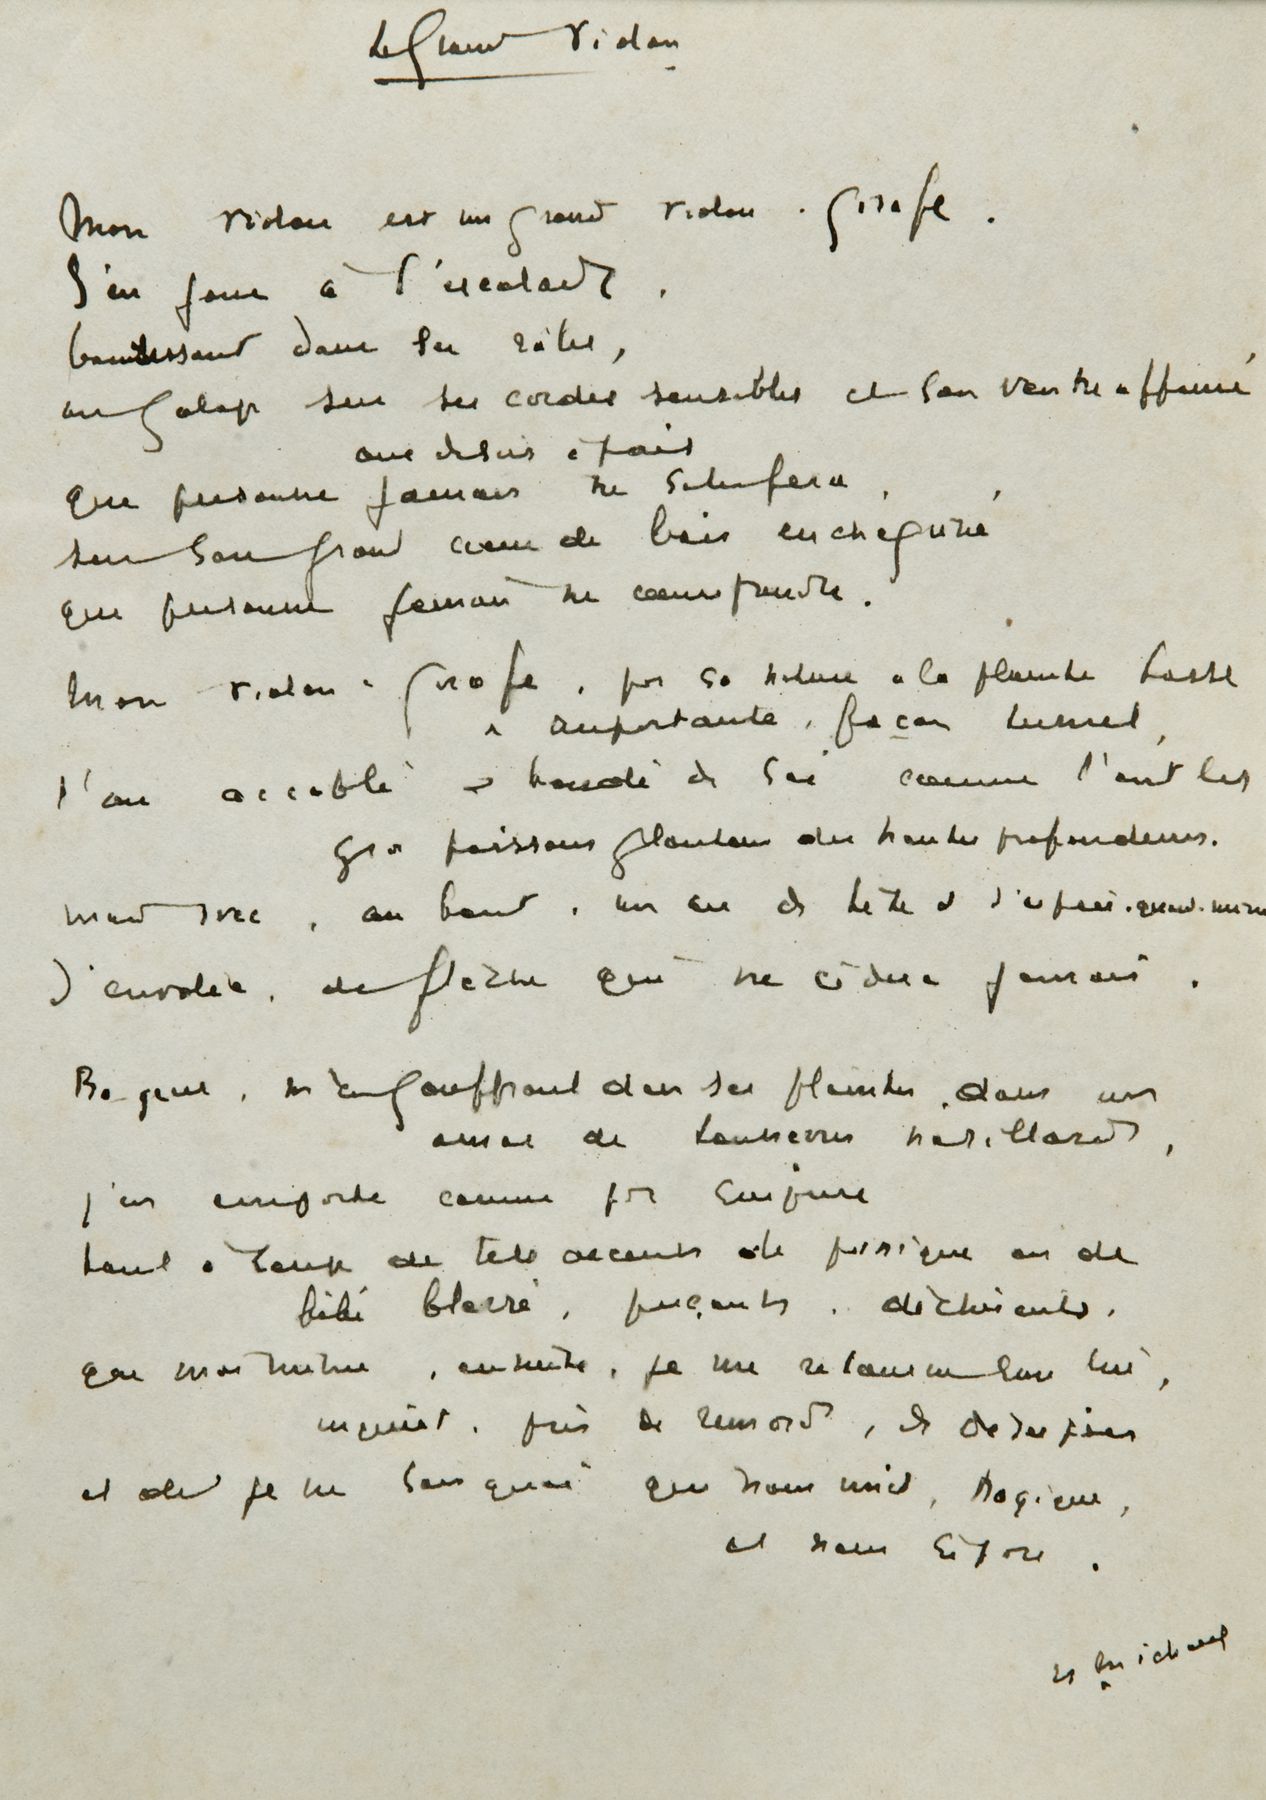 Le Grand Violon
Mon violon est un grand violon-girafe.
J'en joue à l'escalade,
bondissant dans ses râles,
au galop sur ses cordes sensibles et son ventre affamé
aux désirs épais
que personne jamais ne satisfera,
sur son grand cœur de bois enchagriné
que personne jamais ne comprendra.
Mon violon-girafe, par sa nature a la plainte basse
et importante, façon tunnel,
l'air accablé et bondé de soi comme l'ont les
gros poissons gloutons des hautes profondeurs.
mais avec, au bout, un air de tête et d'espoir quand même
d'envolée, de flèche qui ne cédera jamais.
Rageur, m'engouffrant dans ses plaintes, dans un
amas de tonnerres nasillards,
j'en emporte comme par surprise
tout à coup de tels accents de panique ou de
bébé blessé, perçants, déchirants,
que moi-même, ensuite, je me retourne sur lui,
inquiet, pris de remords, de désespoir
et de je ne sais quoi qui nous unit, tragique,
et nous sépare.
H Michaux